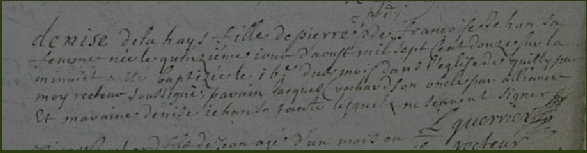 denise dela hays fille de pierre et de francoise Jehan sa
femme née le quinzieme jour d'aoust mil sept cent douze sur la
minuit a été baptizée le 16e du mois dans l'eglise de quilly par
moy recteur soussigné parain Jacques son oncle par alliance
et maraine denise Jehan sa tante lesquels ne scavent signer
L guerrier
fils de Jean agé d'un mois ou
recteur